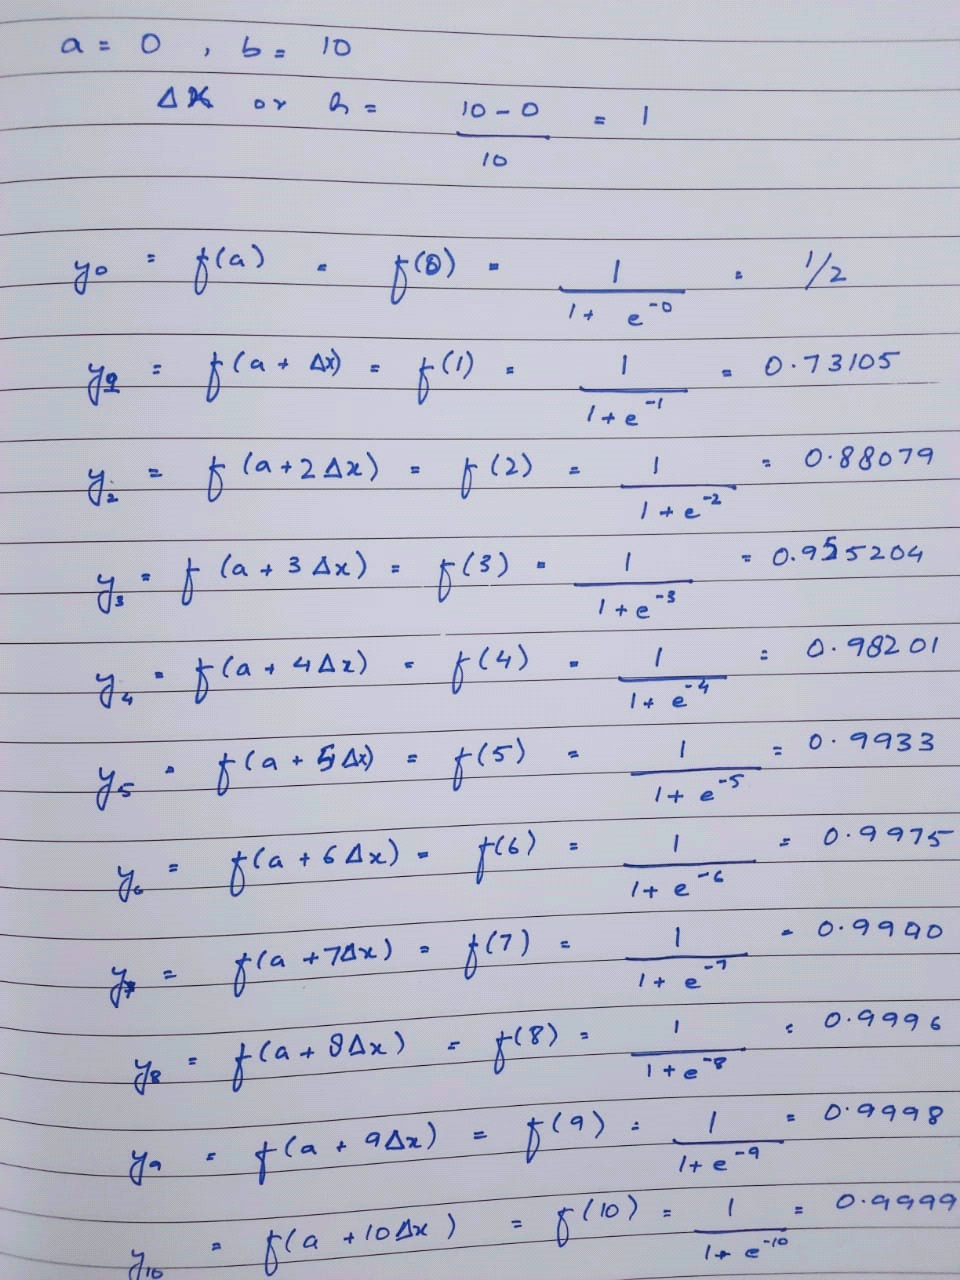 a = 0 , b = 10
Δx or h = 10 - 0 / 10 = 1
y0 = f(a) = f(0) = 1 / 1 + e^-0 = 1/2
y1 = f(a + Δx) = f(1) = 1 / 1 + e^-1 = 0.73105
y2 = f(a + 2Δx) = f(2) = 1 / 1 + e^-2 = 0.88079
y3 = f(a + 3Δx) = f(3) = 1 / 1 + e^-3 = 0.955204
y4 = f(a + 4Δx) = f(4) = 1 / 1 + e^-4 = 0.98201
y5 = f(a + 5Δx) = f(5) = 1 / 1 + e^-5 = 0.9933
y6 = f(a + 6Δx) = f(6) = 1 / 1 + e^-6 = 0.9975
y7 = f(a + 7Δx) = f(7) = 1 / 1 + e^-7 = 0.9990
y8 = f(a + 8Δx) = f(8) = 1 / 1 + e^-8 = 0.9996
y9 = f(a + 9Δx) = f(9) = 1 / 1 + e^-9 = 0.9998
y10 = f(a + 10Δx) = f(10) = 1 / 1 + e^-10 = 0.9999